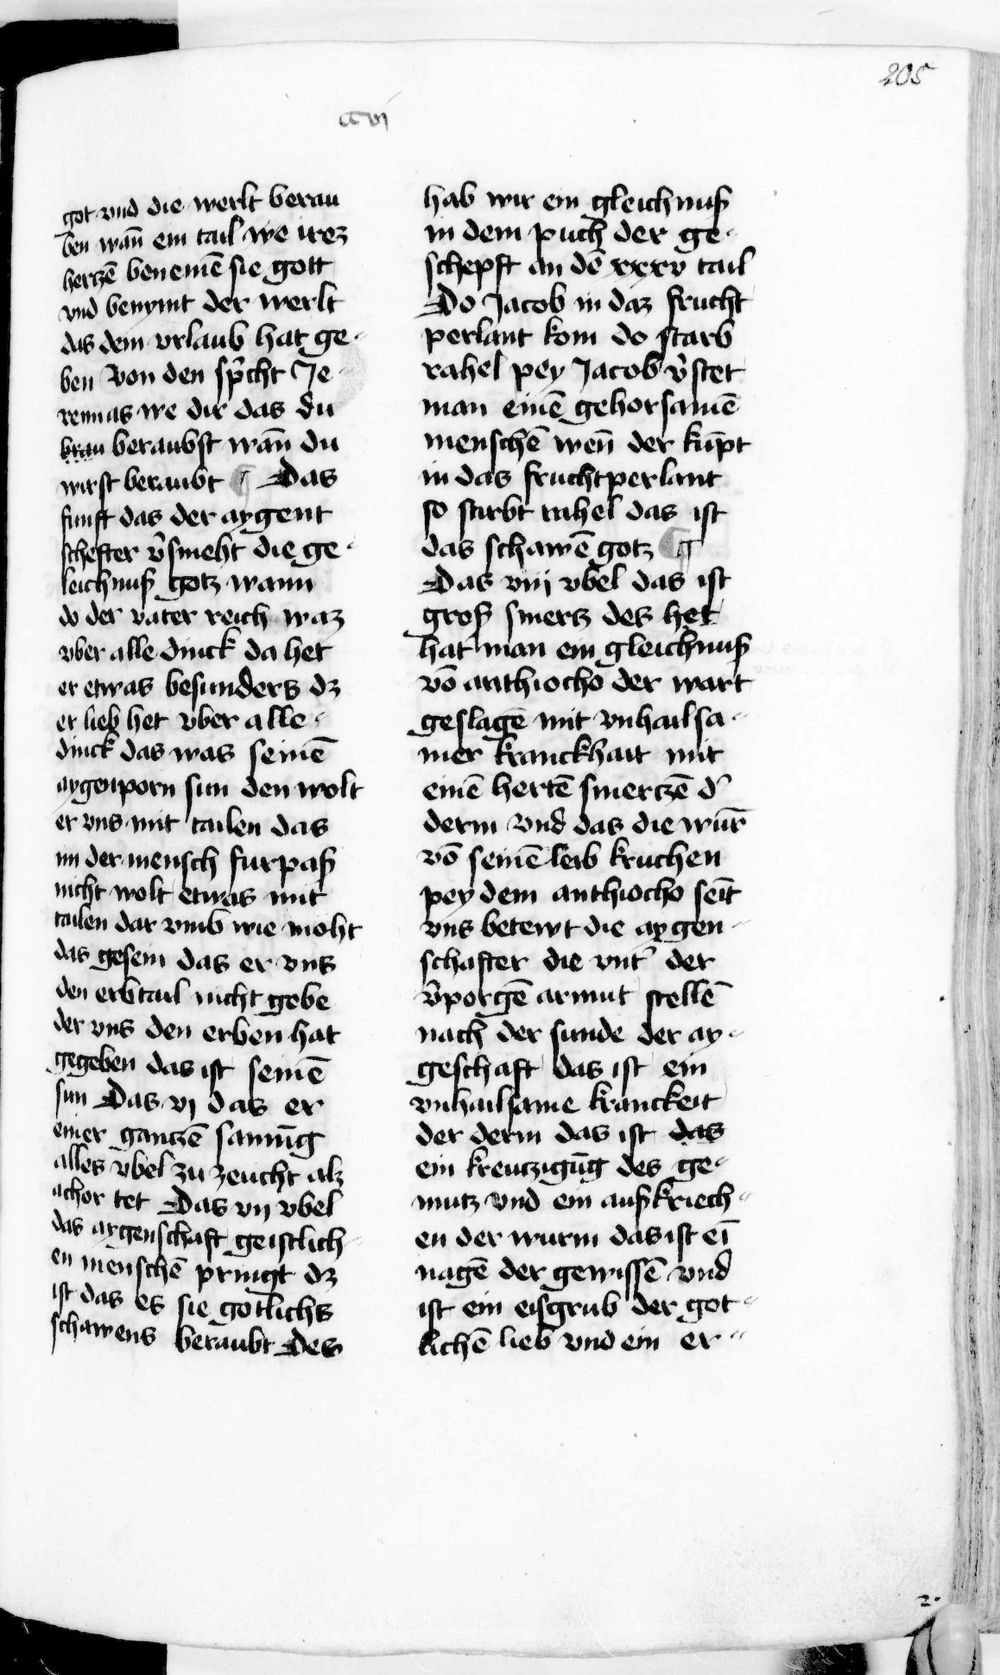 205
ccvi
got vnd die werlt berau
ben wān ein tail we irez
hertzē benemē sie gott
vnd benymt der werlt
das dem vrlaub hat ge-
ben Von den sp̄cht Je
remias we dir das du
beraubst wān du
wirst beraubt ¶ Das
funft das der aygent
schefter v̄smeht die ge-
leichnuß gotz wann
do der vater reich waz
vber alle dinck da het
er etwas besunders dz
er lieb het vber alle-
dinck das was seinē
aygenporn sun den wolt
er vns mit tailen das
im der mensch furpaß
nicht wolt etwas mit
tailen dar vmb wie moht
das gesein das er vns
den erbtail nicht gebe
der vns den erben hat
gegeben das ist seinē
sun Das vj das er
einer gantzē samūg
alles vbel zu zeucht alz
achor tet Das vij vbel
das aygenschaft geistlich-
en menschē pringt dz
ist das es sie gotlichs
schawens beraubt Des
hab wir ein gleichnuß
in dem puch der ge-
schepft an dē xxxv tail
Do Jacob in daz frucht
perlant kom do starb
rahel pey Jacob v̄stet
man einē gehorsamē
menschē wen̄ der kūpt
in das fruchtperlant
so stirbt rahel das ist
das schawē gotz ¶
Das viij vbel das ist
groß smertz des het
hat man ein gleichnuß
vō anthiocho der wart
geslagē mit vnhailsa-
mer kranckhait mit
einē hertē smerczē d'
derm vnd das die wūr
vō seinē leib kruchen
pey dem anthiocho sein̄t
vns betewt die aygen-
schafter die vnt' der
v̄porgē armut stellē
nach der sunde der ay-
geschaft das ist ein
vnhailsame kranckeit
der derm das ist das
ein kreutzigūg des ge-
mutz vnd ein außkriech-
en der wurm das ist eī
nagē der gewissē vnd
ist ein eisgrub der got-
lichē lieb vnd ein er-
2.